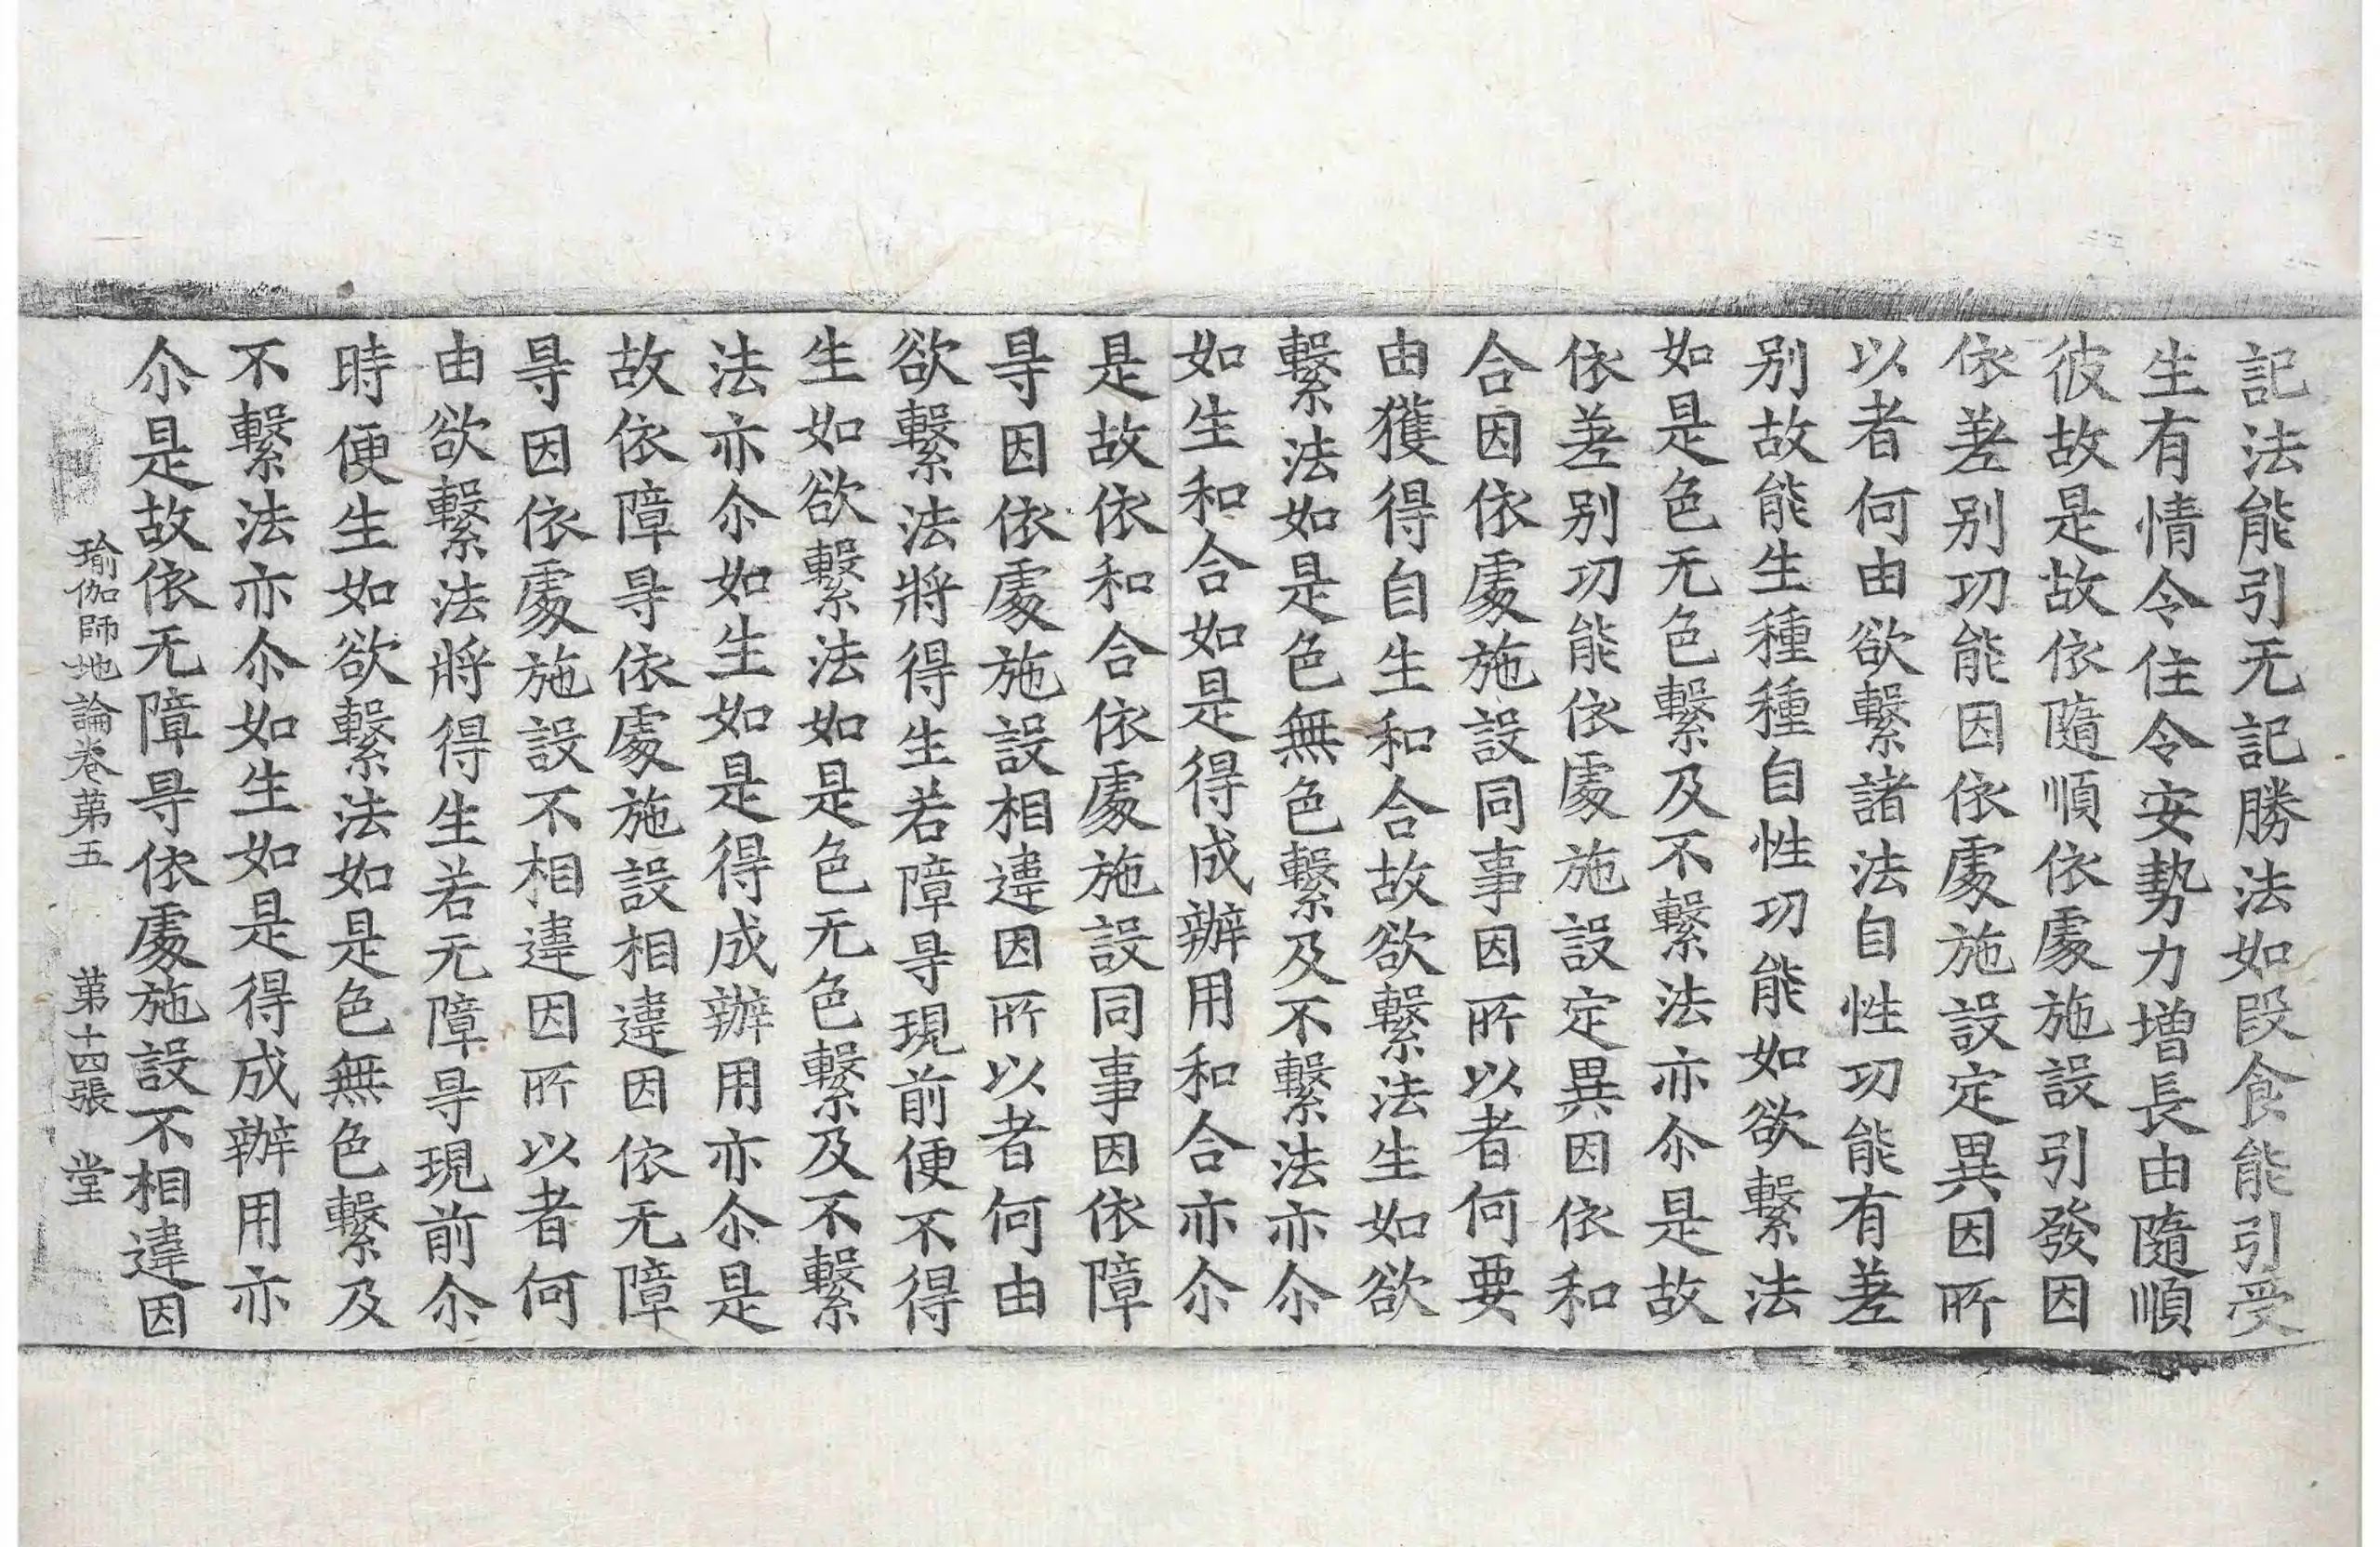 記法能引无記勝法如段食能引受
生有情令住令安勢力增長由隨順
彼故是故依隨順依處施設引發因
依差别功能因依處施設定異因所
以者何由欲繫諸法自性功能有差
别故能生種種自性功能如欲繫法
如是色无色繫及不繫法亦尒是故
依差别功能依處施設定異因依和
合因依處施設同事因所以者何要
由獲得自生和合故欲繫法生如欲
繫法如是色無色繫及不繫法亦尒
如生和合如是得成辦用和合亦尒
是故依和合依處施設同事因依障
㝵因依處施設相違因所以者何由
欲繫法將得生若障㝵現前便不得
生如欲繫法如是色无色繫及不繫
法亦尒如生如是得成辦用亦尒是
故依障㝵依處施設相違因依无障
㝵因依處施設不相違因所以者何
由欲繫法將得生若无障㝵現前尒
時便生如欲繫法如是色無色繫及
不繫法亦尒如生如是得成辦用亦
尒是故依无障㝵依處施設不相違因
瑜伽師地論卷第五 第十四張 堂